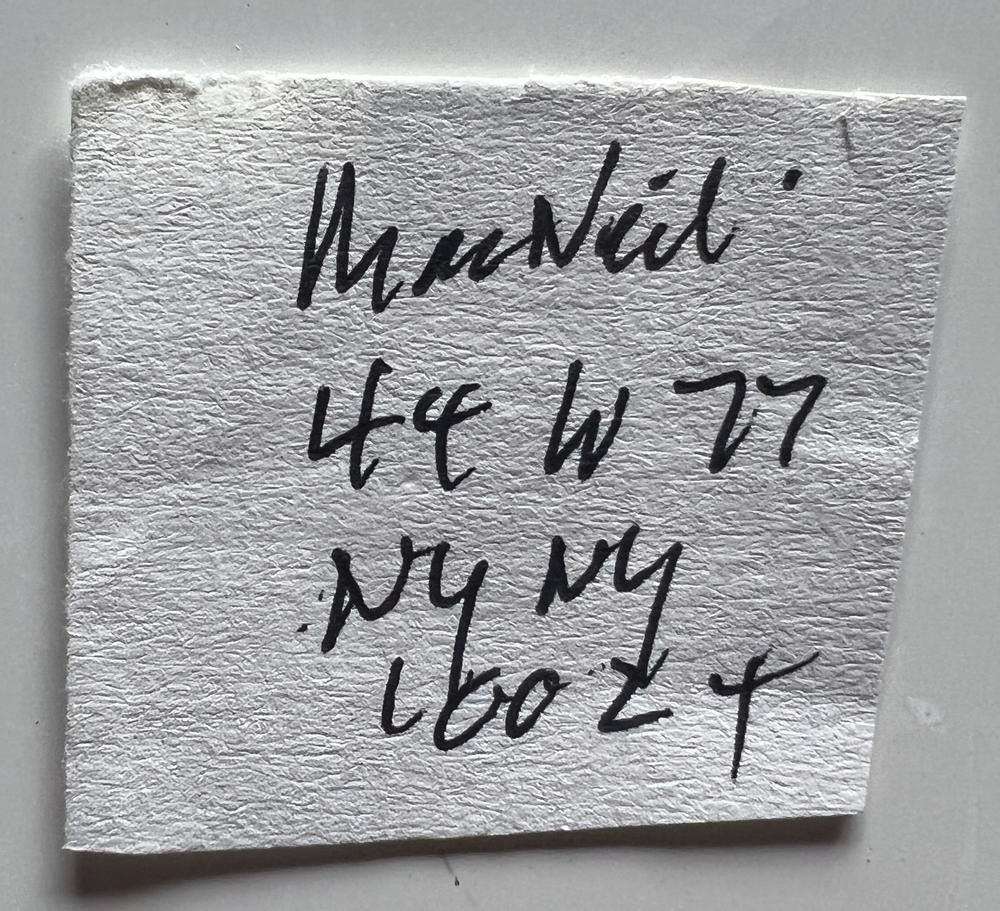 MacNeil
44 W 77
NY NY
10024